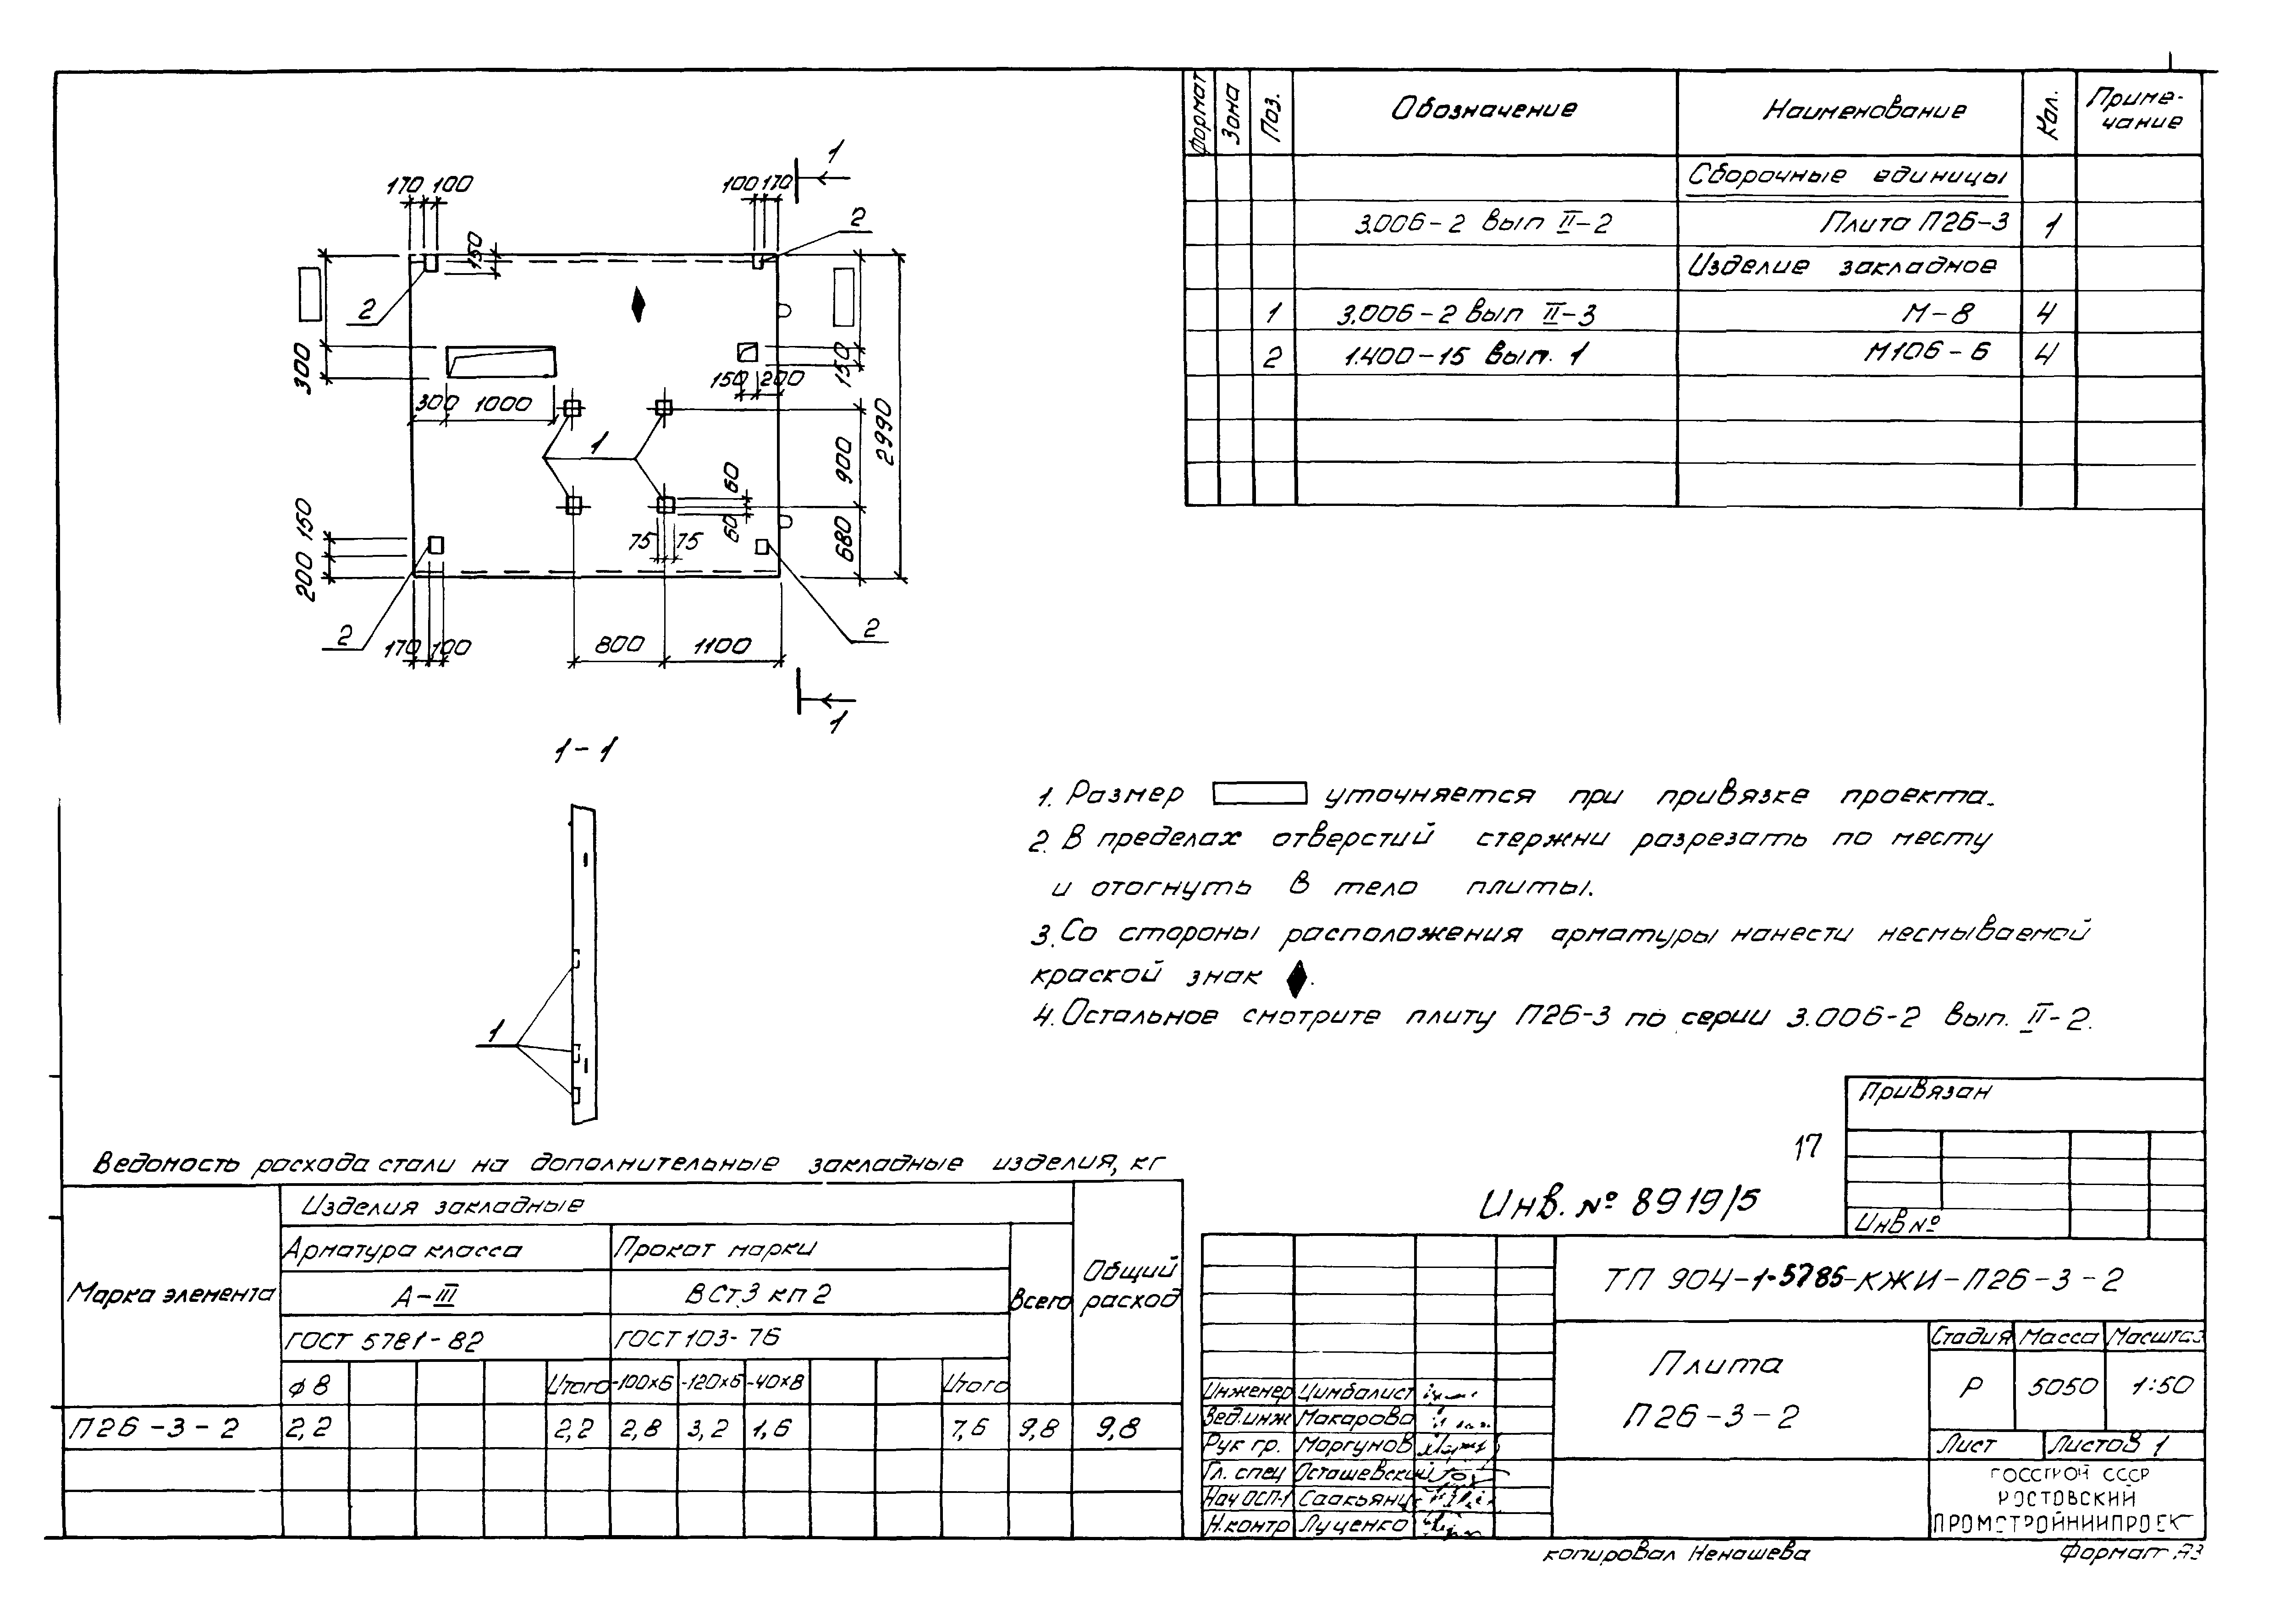 Формат Зона Поз. Обозначение Наименование Кол. Приме-
чание
Сборочные единицы
3.006-2 вып II-2 Плита П26-3 1
Изделие закладное
1 3.006-2 вып II-3 М-8 4
2 1.400-15 вып. 1 М106-6 4
1
170 100
100 170
2
150
2
300
150
150 200
300 1000
1
900
2990
60
60
75 75
680
150
200
2
170 100
800
1100
2
1
1-1
1
1. Размер уточняется при привязке проекта.
2. В пределах отверстий стержни разрезать по месту
и отогнуть в тело плиты.
3. Со стороны расположения арматуры нанести несмываемой
краской знак ♦.
4. Остальное смотрите плиту П26-3 по серии 3.006-2 вып. II-2.
Привязан
Инв №
17
Инв. № 8919/5
Ведомость расхода стали на дополнительные закладные изделия, кг
Марка элемента Изделия закладные Общий
расход
Арматура класса Прокат марки Всего
А-III ВСт.3 кп 2
ГОСТ 5781-82 ГОСТ 103-76
ф 8 Итого -100х6 -120х6 -40х8 Итого
П26-3-2 2,2 2,2 2,8 3,2 1,6 7,6 9,8 9,8
ТП 904-1-5785-КЖИ-П26-3-2
Плита
П26-3-2
Стадия Масса Масштаб
Р 5050 1:50
Лист Листов 1
Инженер Цимбалист
Вед.инж Макарова
Рук гр. Моргунов
Гл. спец Осташевский
Нач ОСП-1 Саакьянц
Н.контр Луценко
ГОССТРОЙ СССР
РОСТОВСКИЙ
ПРОМСТРОЙНИИПРОЕКТ
копировал Ненашева
Формат А3